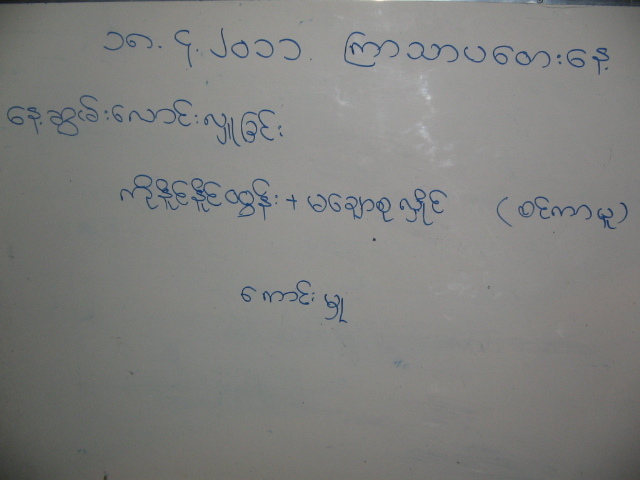 ၁၈.၄.၂၀၁၁. ကြာသာပတေးနေ့
နေ့ဆွမ်းလောင်းလှူခြင်း
ကိုနိုင်နိုင်ထွန်း + မချောစုလှိုင် (စင်ကာပူ)
ကောင်းမှု